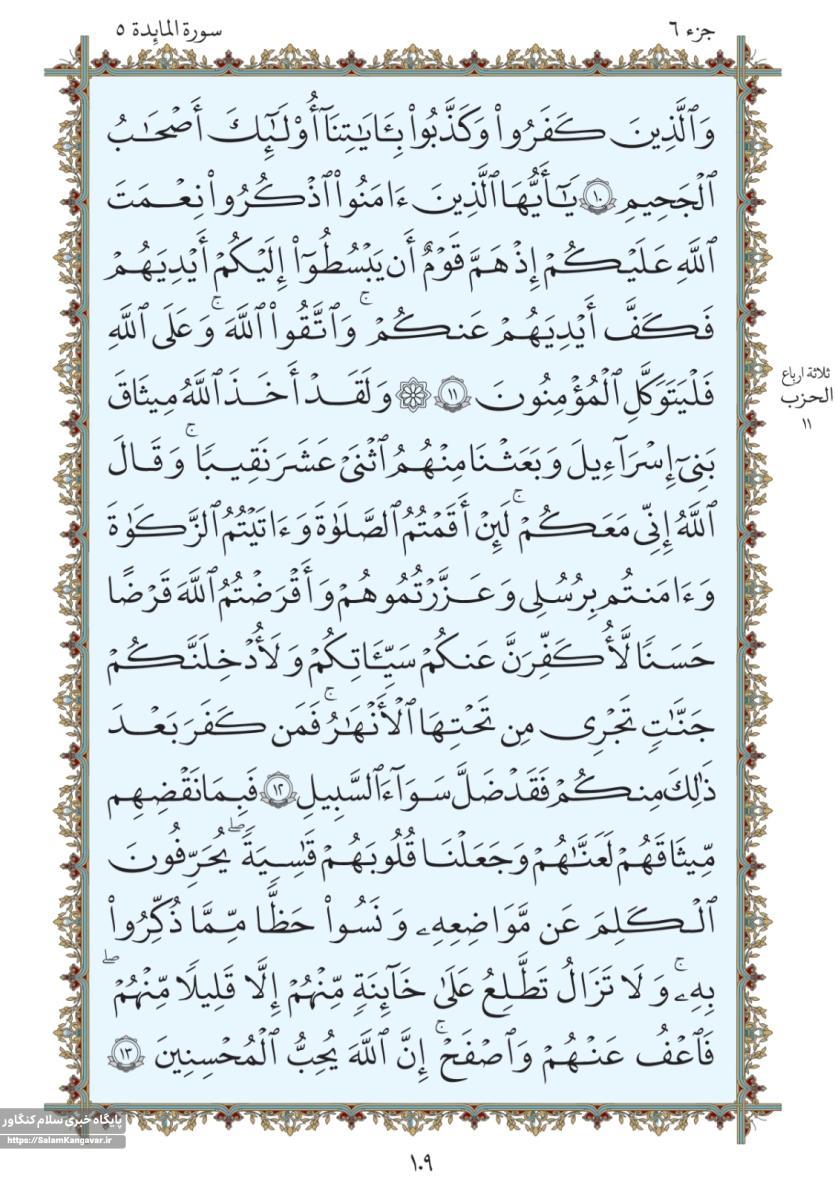 جزء ۶
سورة المائدة ۵
وَٱلَّذِينَ كَفَرُوا۟ وَكَذَّبُوا۟ بِـَٔايَـٰتِنَآ أُو۟لَـٰٓئِكَ أَصْحَـٰبُ
ٱلْجَحِيمِ ۝١٠ يَـٰٓأَيُّهَا ٱلَّذِينَ ءَامَنُوا۟ ٱذْكُرُوا۟ نِعْمَتَ
ٱللَّهِ عَلَيْكُمْ إِذْ هَمَّ قَوْمٌ أَن يَبْسُطُوٓا۟ إِلَيْكُمْ أَيْدِيَهُمْ
فَكَفَّ أَيْدِيَهُمْ عَنكُمْ ۚ وَٱتَّقُوا۟ ٱللَّهَ ۚ وَعَلَى ٱللَّهِ
فَلْيَتَوَكَّلِ ٱلْمُؤْمِنُونَ ۝١١ ۞ وَلَقَدْ أَخَذَ ٱللَّهُ مِيثَـٰقَ
ثلاثة ارباع
الحزب
١١
بَنِىٓ إِسْرَٰٓءِيلَ وَبَعَثْنَا مِنْهُمُ ٱثْنَىْ عَشَرَ نَقِيبًا ۖ وَقَالَ
ٱللَّهُ إِنِّى مَعَكُمْ ۖ لَئِنْ أَقَمْتُمُ ٱلصَّلَوٰةَ وَءَاتَيْتُمُ ٱلزَّكَوٰةَ
وَءَامَنتُم بِرُسُلِى وَعَزَّرْتُمُوهُمْ وَأَقْرَضْتُمُ ٱللَّهَ قَرْضًا
حَسَنًا لَّأُكَفِّرَنَّ عَنكُمْ سَيِّـَٔاتِكُمْ وَلَأُدْخِلَنَّكُمْ
جَنَّـٰتٍ تَجْرِى مِن تَحْتِهَا ٱلْأَنْهَـٰرُ ۚ فَمَن كَفَرَ بَعْدَ
ذَٰلِكَ مِنكُمْ فَقَدْ ضَلَّ سَوَآءَ ٱلسَّبِيلِ ۝١٢ فَبِمَا نَقْضِهِم
مِّيثَـٰقَهُمْ لَعَنَّـٰهُمْ وَجَعَلْنَا قُلُوبَهُمْ قَـٰسِيَةً ۖ يُحَرِّفُونَ
ٱلْكَلِمَ عَن مَّوَاضِعِهِۦ وَنَسُوا۟ حَظًّا مِّمَّا ذُكِّرُوا۟
بِهِۦ ۚ وَلَا تَزَالُ تَطَّلِعُ عَلَىٰ خَآئِنَةٍ مِّنْهُمْ إِلَّا قَلِيلًا مِّنْهُمْ ۖ
فَٱعْفُ عَنْهُمْ وَٱصْفَحْ ۚ إِنَّ ٱللَّهَ يُحِبُّ ٱلْمُحْسِنِينَ ۝١٣
پایگاه خبری سلام کنگاور
https://SalamKangavar.ir
١٠٩